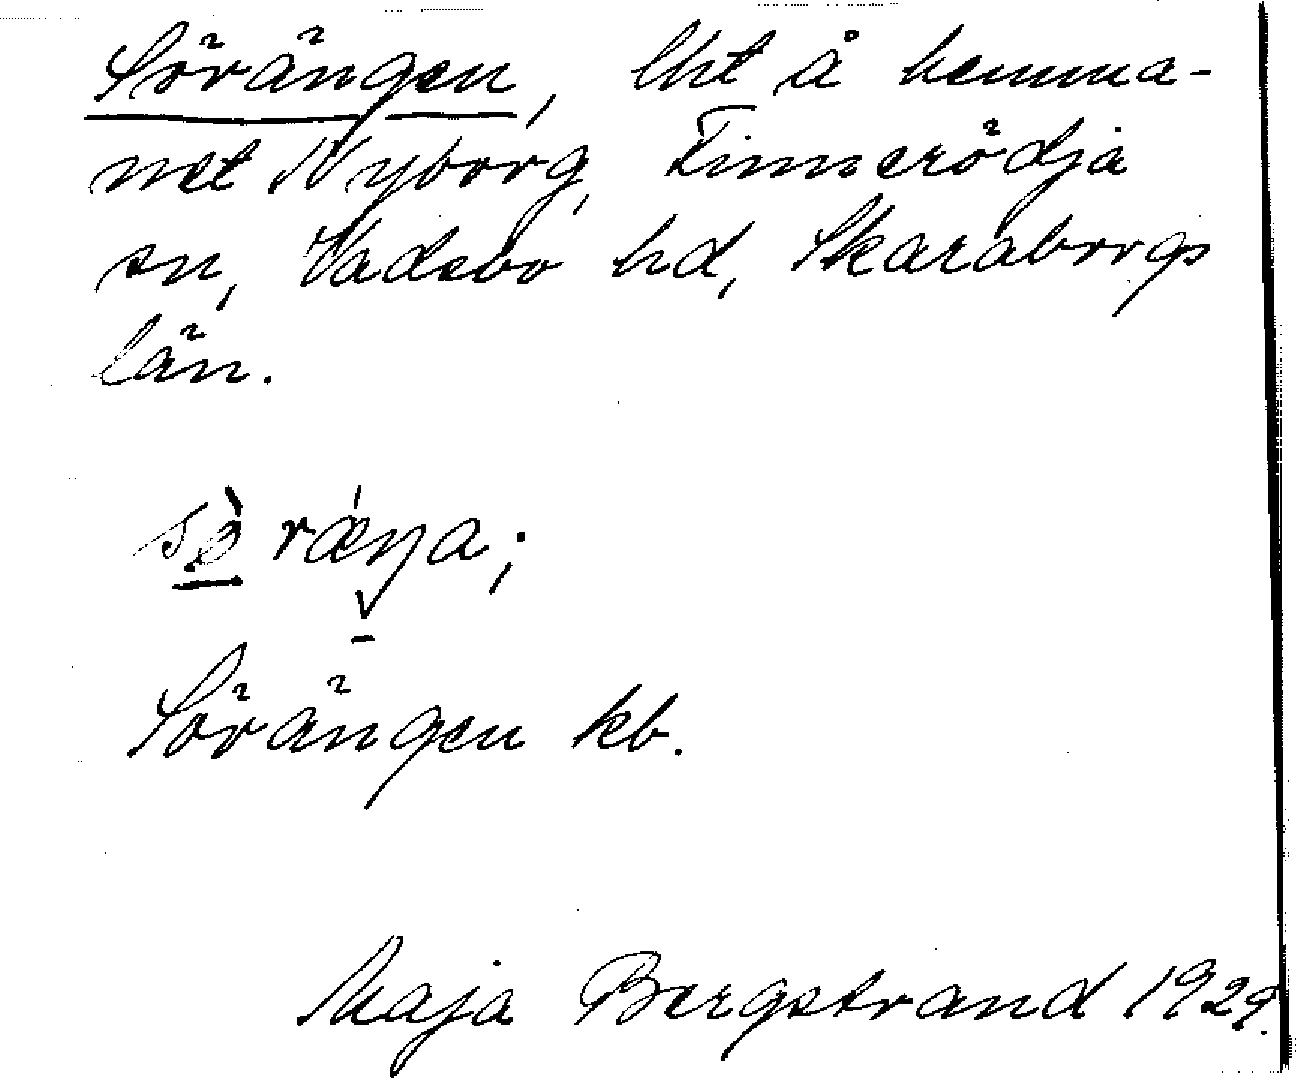 Sörängen, lht å hemma-
net Nyborg, Tinnerödja
sn, Vadsbo hd, Skaraborgs
län.
sè ræŋa;
Sörängen kb.
Maja Bergstrand 1929.